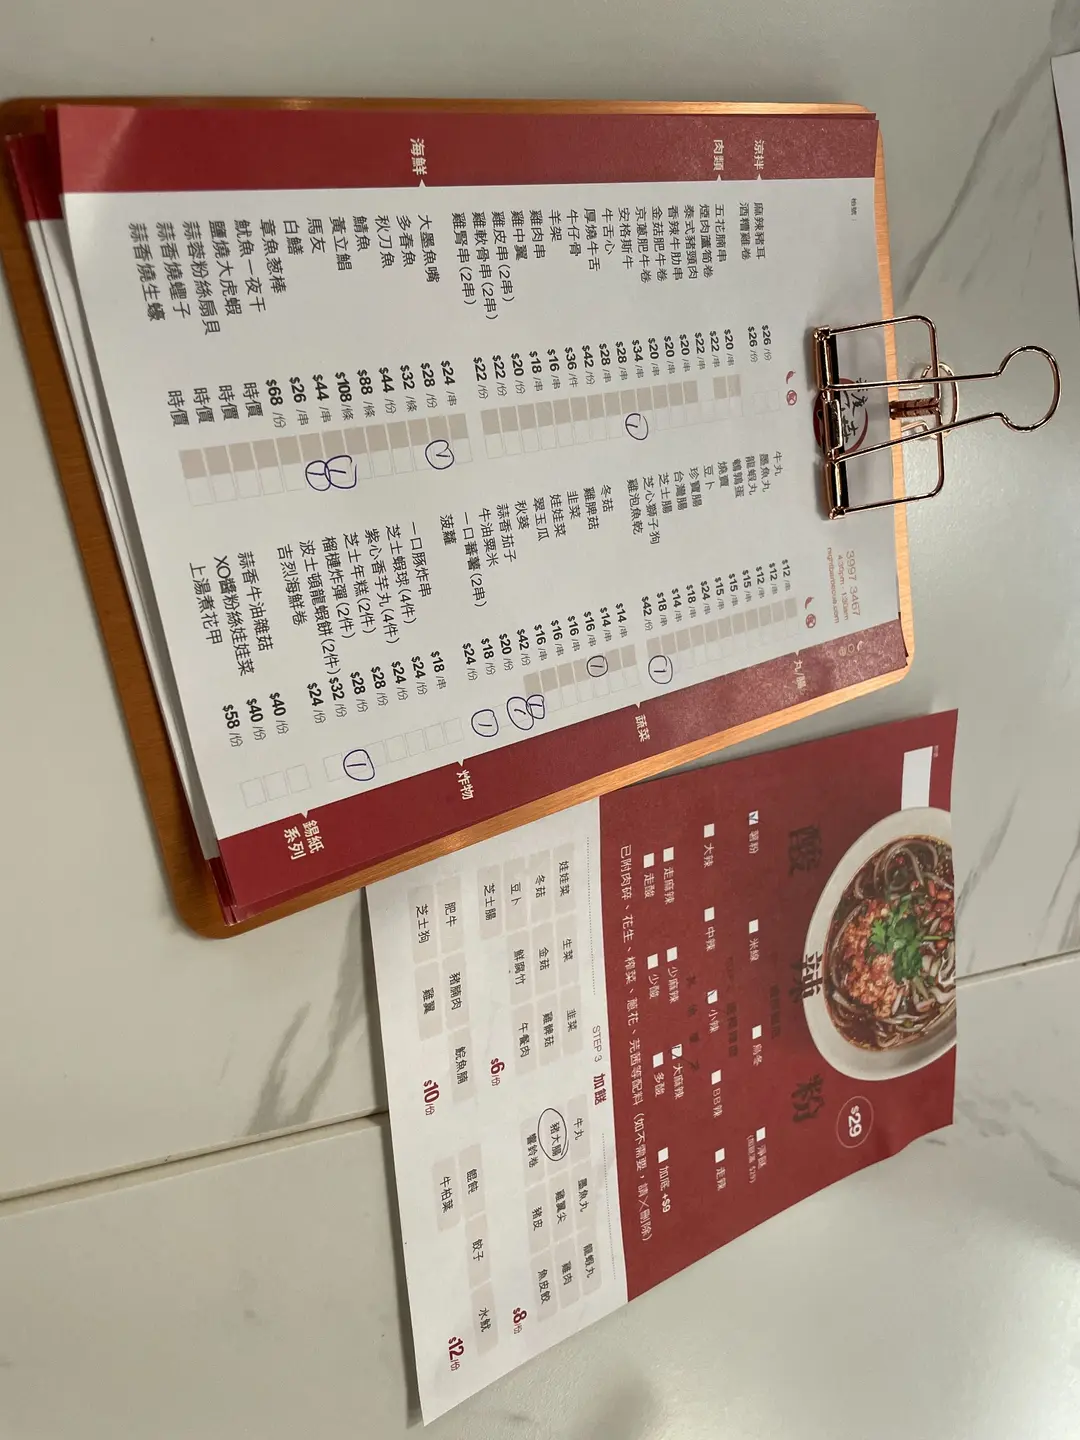 枱號：
3997 3467
4:30pm - 1:30am
涼拌
麻辣豬耳 $26/份
酒糟雞卷 $26/份
肉類
五花腩串 $20/串
煙肉蘆筍卷 $22/串
泰式豬頸肉 $22/串
香辣牛肋串 $20/串
金菇肥牛卷 $20/串
京蔥肥牛卷 $20/串
安格斯牛 $34/串 1
牛舌心 $28/串
厚燒牛舌 $28/串
牛仔骨 $42/份
羊架 $36/件
雞肉串 $16/串
雞中翼 $18/串
雞皮串(2串) $20/份
雞軟骨串(2串) $22/份
雞腎串(2串) $22/份
海鮮
大墨魚嘴 $24/串
多春魚 $28/份
秋刀魚 $32/條
鯖魚 $44/份
黃立鯧 $88/條
馬友 $108/條
白鱔 $44/串
章魚葱棒 $26/串
魷魚一夜干 $68/份
鹽燒大虎蝦 時價
蒜蓉粉絲扇貝 時價
蒜香燒蟶子 時價
蒜香燒生蠔 時價
丸/腸
牛丸 $12/串
墨魚丸 $12/串
龍蝦丸 $12/串
鵪鶉蛋 $15/串
燒賣 $15/串
豆卜 $15/串
珍寶腸 $24/串
台灣腸 $18/串
芝士腸 $14/串
芝心獅子狗 $18/串 1
雞泡魚乾 $42/份
蔬菜
冬菇 $14/串
雞脾菇 $14/串
韭菜 $16/串 1
娃娃菜 $16/串
翠玉瓜 $16/串
秋葵 $16/串
蒜香茄子 $42/份
牛油粟米 $20/份
一口蕃薯(2串) $18/份
菠蘿 $24/份
炸物
一口豚炸串 $18/串
芝士蝦球(4件) $24/份
紫心香芋丸(4件) $24/份
芝士年糕(2件) $28/份
榴槤炸彈(2件) $28/份
波士頓龍蝦餅(2件) $32/份
吉烈海鮮卷 $24/份
錫紙系列
蒜香牛油雜菇 $40/份
XO醬粉絲娃娃菜 $40/份
上湯煮花甲 $58/份
酸辣粉
$29
薯粉 米線 烏冬 淨餸
大辣 中辣 小辣 BB辣 走辣
走麻辣 少麻辣 大麻辣
走酸 少酸 多酸 加底 +$9
已附肉碎、花生、榨菜、蔥花、芫茜等配料（如不需要，請╳刪除）
STEP 3 加餸
娃娃菜 生菜 韭菜
冬菇 金菇 雞脾菇
豆卜 鮮腐竹 午餐肉
芝士腸 $6/份
肥牛 豬腩肉 鯇魚腩
芝士狗 雞翼 $10/份
牛丸 墨魚丸 龍蝦丸
豬大腸 雞翼尖 雞肉
響鈴卷 豬皮 魚皮餃
$8/份
餛飩 餃子 水魷
牛柏葉 $12/份